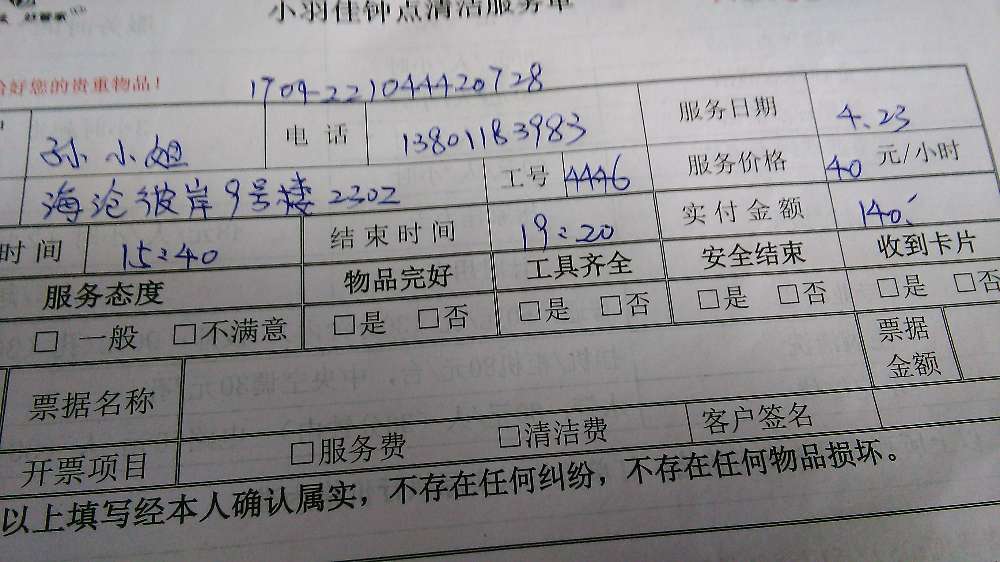 小羽佳钟点清洁服务单
好您的贵重物品!
1709-221044420728
孙小姐 电话 13801183983 服务日期 4.23
海沧彼岸9号楼2302 工号 4446 服务价格 40 元/小时
时间 15:40 结束时间 19:20 实付金额 140.
服务态度 物品完好 工具齐全 安全结束 收到卡片
□ 一般 □不满意 □是 □否 □是 □否 □是 □否 □是 □否
票据名称 票据金额
开票项目 □服务费 □清洁费 客户签名
以上填写经本人确认属实，不存在任何纠纷，不存在任何物品损坏。